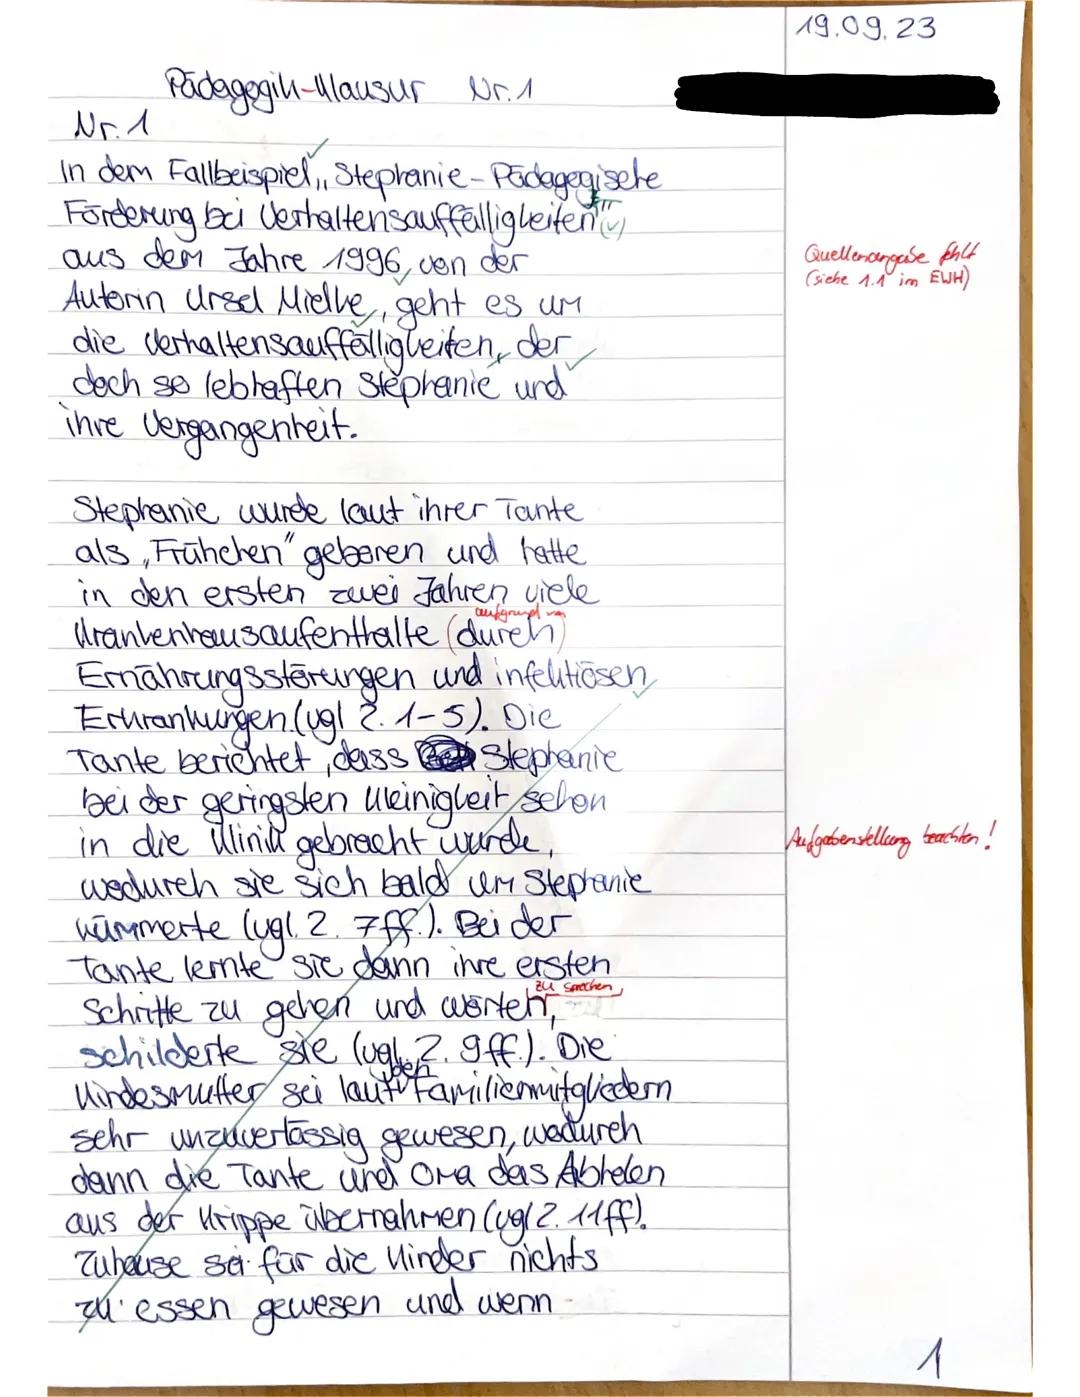 19.09.23
Pädagogik-Klausur Nr. 1
Nr. 1
In dem Fallbeispiel „Stephanie - Pädagogische
Förderung bei Verhaltensauffälligkeiten"
aus dem Jahre 1996, von der
Quellenangabe fehlt
(siehe 1.1 im EWH)
Autorin Ursel Mielke, geht es um
die Verhaltensauffälligkeiten, der
doch so lebhaften Stephanie und
ihre Vergangenheit.
Stephanie wurde laut ihrer Tante
als „Frühchen" geboren und hatte
in den ersten zwei Jahren viele
aufgrund von
Krankenhausaufenthalte (durch)
Ernährungsstörungen und infektiösen
Erkrankungen (vgl Z. 1-5). Die
Tante berichtet, dass Stephanie
bei der geringsten Kleinigkeit schon
in die Klinik gebracht wurde,
Aufgabenstellung beachten!
wodurch sie sich bald um Stephanie
kümmerte (vgl. Z. 7ff.). Bei der
Tante lernte sie dann ihre ersten
zu sprechen
Schritte zu gehen und wörter,
schilderte sie (vgl. Z. 9ff.). Die
den
Kindesmutter sei laut Familienmitgliedern
sehr unzuverlässig gewesen, wodurch
dann die Tante und Oma das Abholen
aus der Krippe übernahmen (vgl Z. 11ff).
Zuhause sei für die Kinder nichts
zu essen gewesen und wenn
1